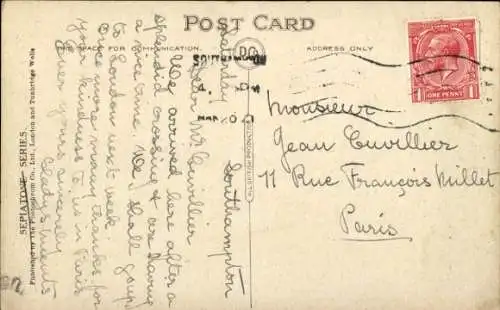 POST CARD
THE SPACE FOR COMMUNICATION.
ADDRESS ONLY
Southampton
Saturday
Dear Mr Cuvillier
We arrived here after a
splendid crossing & are having
a nice time. We shall go up
to London next week.
Once more many thanks for
your kindness to us in Paris
Ever yours sincerely
Gladys
SEPIATONE SERIES.
Published by The Photochrom Co., Ltd., London and Tunbridge Wells
ONE PENNY
1
Monsieur
Jean Cuvillier
11 Rue François Millet
Paris